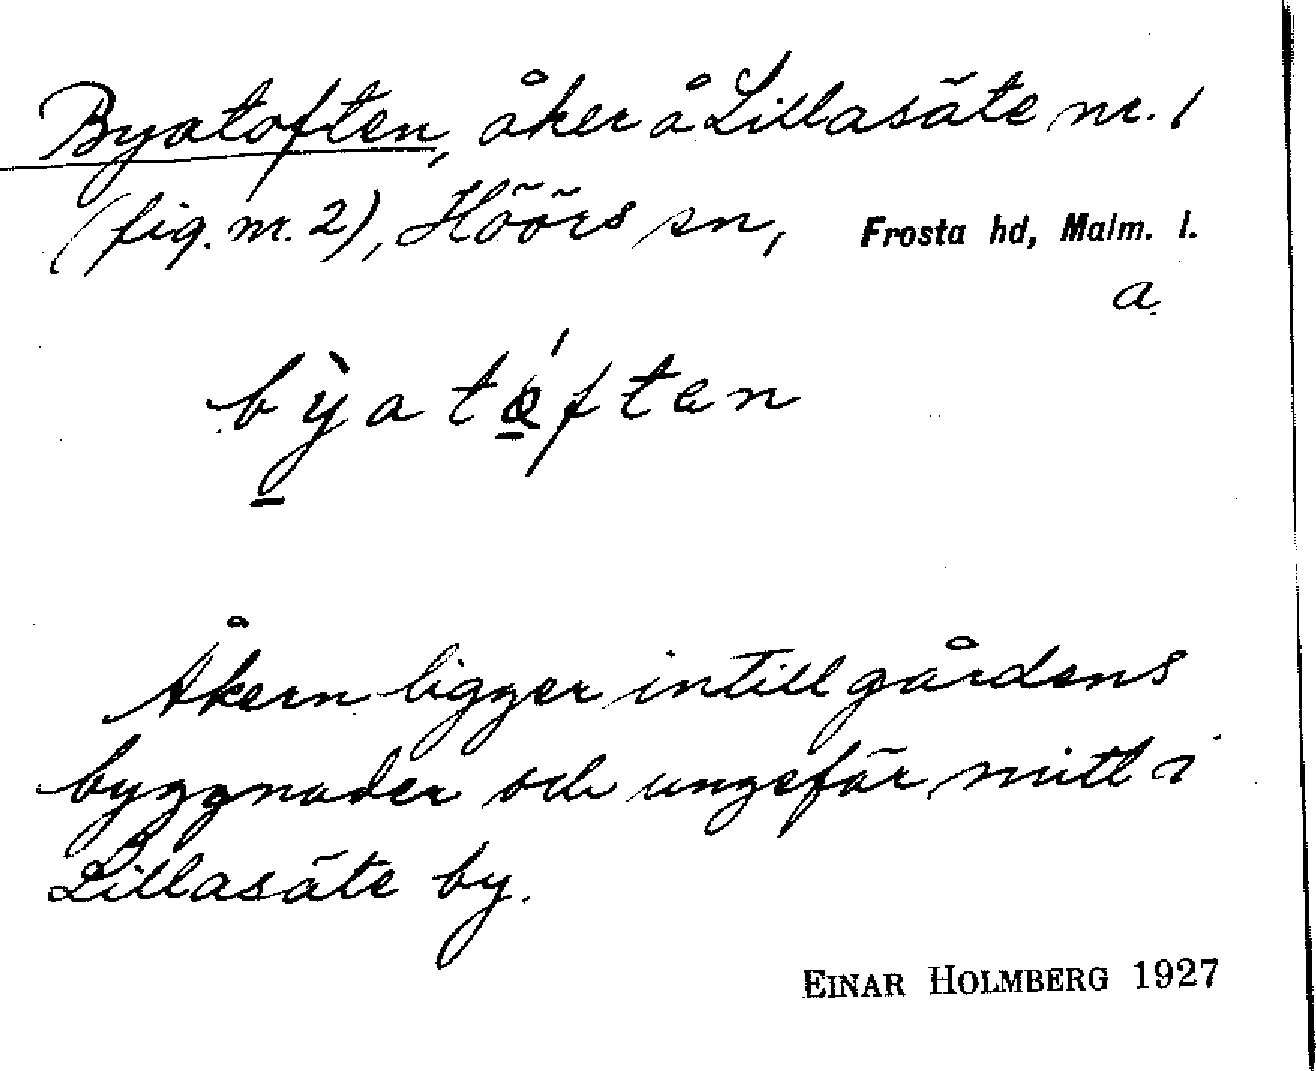 Byatoften, åker å Lillasäte nr. 1
(fig. nr. 2), Höörs sn, Frosta hd, Malm. l.
a.
bỳatóften
Åkern ligger intill gårdens
byggnader och ungefär mitt i
Lillasäte by.
EINAR HOLMBERG 1927